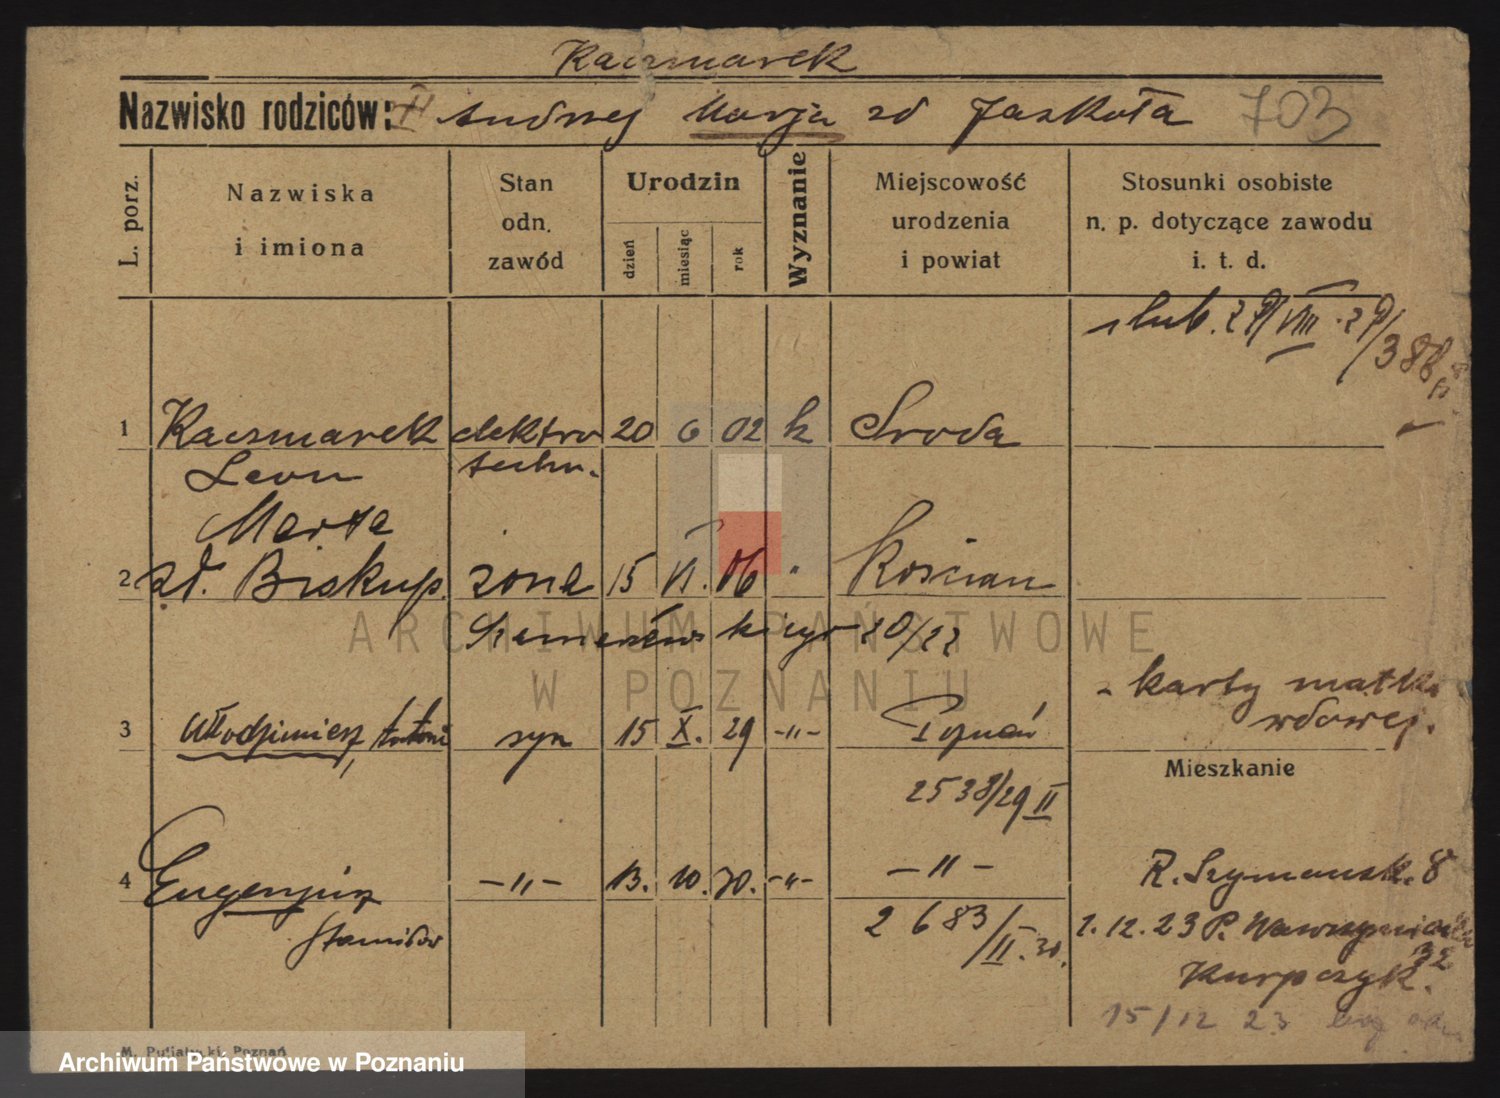 Kaczmarek
Nazwisko rodziców: Andrzej Marja zd Jaskoła 703
L. porz.
Nazwiska i imiona
Stan odn. zawód
Urodzin
dzień
miesiąc
rok
Wyznanie
Miejscowość urodzenia i powiat
Stosunki osobiste n. p. dotyczące zawodu i. t. d.
slub. 29/VIII.29/388
1 Kaczmarek elektro 20 6 02 k Sroda
Leon techn.
Marta
2 zd. Biskup. zona 15 VI. 06 " Koscian
20/22
- karty matki
wdowej.
3 Włodzimierz, Antoni syn 15 X. 29 -"- Poznań
Mieszkanie
2538/29 II
4 Eugenjusz -"- 13. 10. 30. -"- -"- R. Szymansk. 8
Stanisław 2683/II.30. 1.12.23 P. Wawrzyniaka
32
Kurpczyk.
15/12 23
M. Putiatycki, Poznań
ARCHIWUM PAŃSTWOWE
W POZNANIU
Archiwum Państwowe w Poznaniu